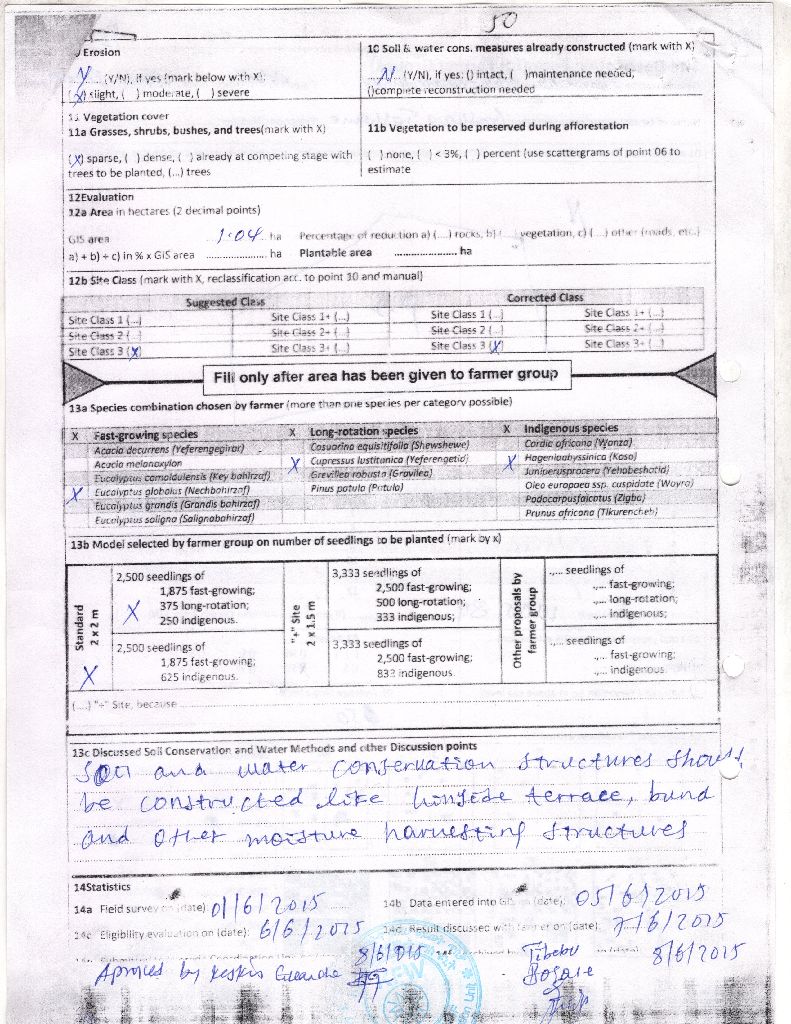 50
Erosion
Y (Y/N), if yes (mark below with X);
(X) slight, ( ) moderate, ( ) severe
10 Soil & water cons. measures already constructed (mark with X)
N (Y/N), if yes: () intact, ( )maintenance needed;
()complete reconstruction needed
11 Vegetation cover
11a Grasses, shrubs, bushes, and trees(mark with X)
(X) sparse, ( ) dense, ( ) already at competing stage with
trees to be planted, (...) trees
11b Vegetation to be preserved during afforestation
( ) none, ( ) < 3%, ( ) percent (use scattergrams of point 06 to
estimate
12Evaluation
12a Area in hectares (2 decimal points)
GIS area 1.04 ha Percentage of reduction a) (...) rocks, b) (... vegetation, c) (...) other (roads, etc.)
a) + b) + c) in % x GIS area .................. ha Plantable area .................. ha
12b Site Class (mark with X, reclassification acc. to point 10 and manual)
Suggested Class Corrected Class
Site Class 1 (...) Site Class 1+ (...) Site Class 1 (...) Site Class 1+ (...)
Site Class 2 (...) Site Class 2+ (...) Site Class 2 (...) Site Class 2+ (...)
Site Class 3 (X) Site Class 3+ (...) Site Class 3 (X) Site Class 3+ (...)
Fill only after area has been given to farmer group
13a Species combination chosen by farmer (more than one species per category possible)
X Fast-growing species
Acacia decurrens (Yeferengegirar)
Acacia melanoxylon
Eucalyptus camaldulensis (Key bahirzaf)
X Eucalyptus globolus (Nechbahirzaf)
Eucalyptus grandis (Grandis bahirzaf)
Eucalyptus saligna (Salignabahirzaf)
X Long-rotation species
Casuarina equisitifolia (Shewshewe)
X Cupressus lustitanica (Yeferengetid)
Grevillea robusta (Gravilea)
Pinus patula (Patula)
X Indigenous species
Cordia africana (Wanza)
X Hageniaabyssinica (Koso)
Juniperusprocera (Yehabeshatid)
Oleo europaea ssp. cuspidate (Woyra)
Podocarpusfalcatus (Zigba)
Prunus africana (Tikurencheh)
13b Model selected by farmer group on number of seedlings to be planted (mark by x)
Standard
2 x 2 m
X
X
2,500 seedlings of
1,875 fast-growing;
375 long-rotation;
250 indigenous.
2,500 seedlings of
1,875 fast-growing;
625 indigenous.
"+" Site
2 x 1.5 m
3,333 seedlings of
2,500 fast-growing;
500 long-rotation;
333 indigenous;
3,333 seedlings of
2,500 fast-growing;
833 indigenous.
Other proposals by
farmer group
..... seedlings of
..... fast-growing;
..... long-rotation;
..... indigenous;
..... seedlings of
..... fast-growing;
..... indigenous.
(....) "+" Site, because
13c Discussed Soil Conservation and Water Methods and other Discussion points
Soil and water conservation structures should
be constructed like terrace, bund
and other moisture harvesting structures
14Statistics
14a Field survey on (date) 01/6/2015
14b Data entered into GIS on (date): 05/6/2015
14c Eligibility evaluation on (date): 6/6/2015
14d Result discussed with farmer on (date): 7/6/2015
8/6/2015
8/6/2015
by
Tibebu